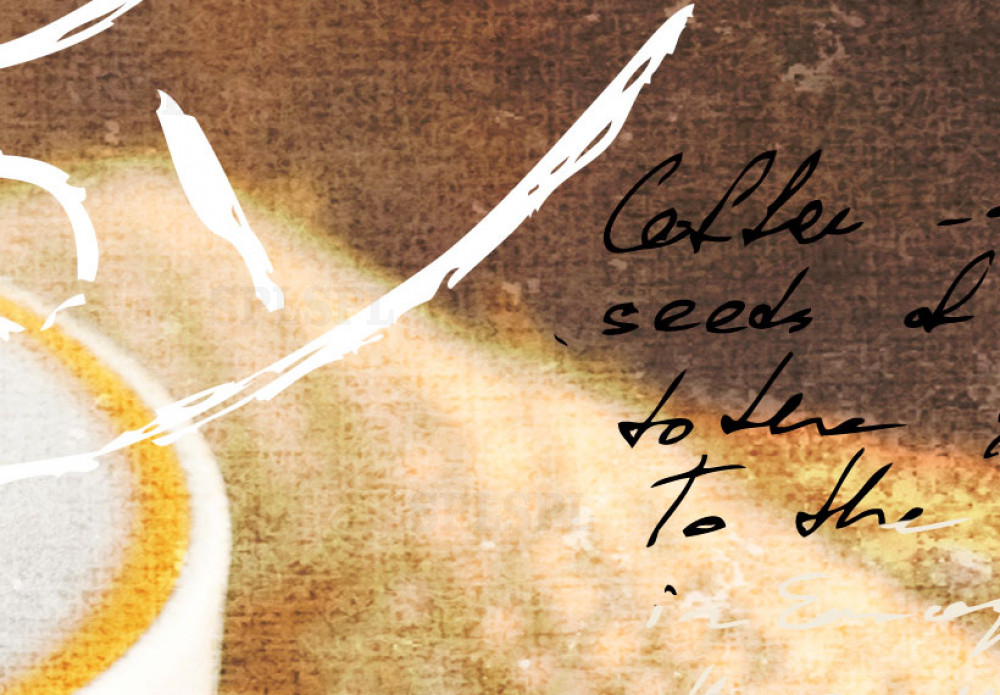 Coffee -
seeds of
to the
To the
in Europ